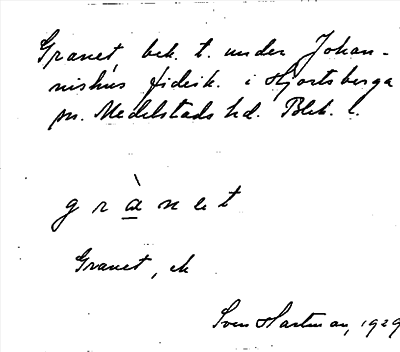 Granet bek. t. under Johan-
nishus fideik. i Hjortsberga
sn. Medelstads hd. Blek. l.
grànet
Granet, ek
Sven Hartman, 1929